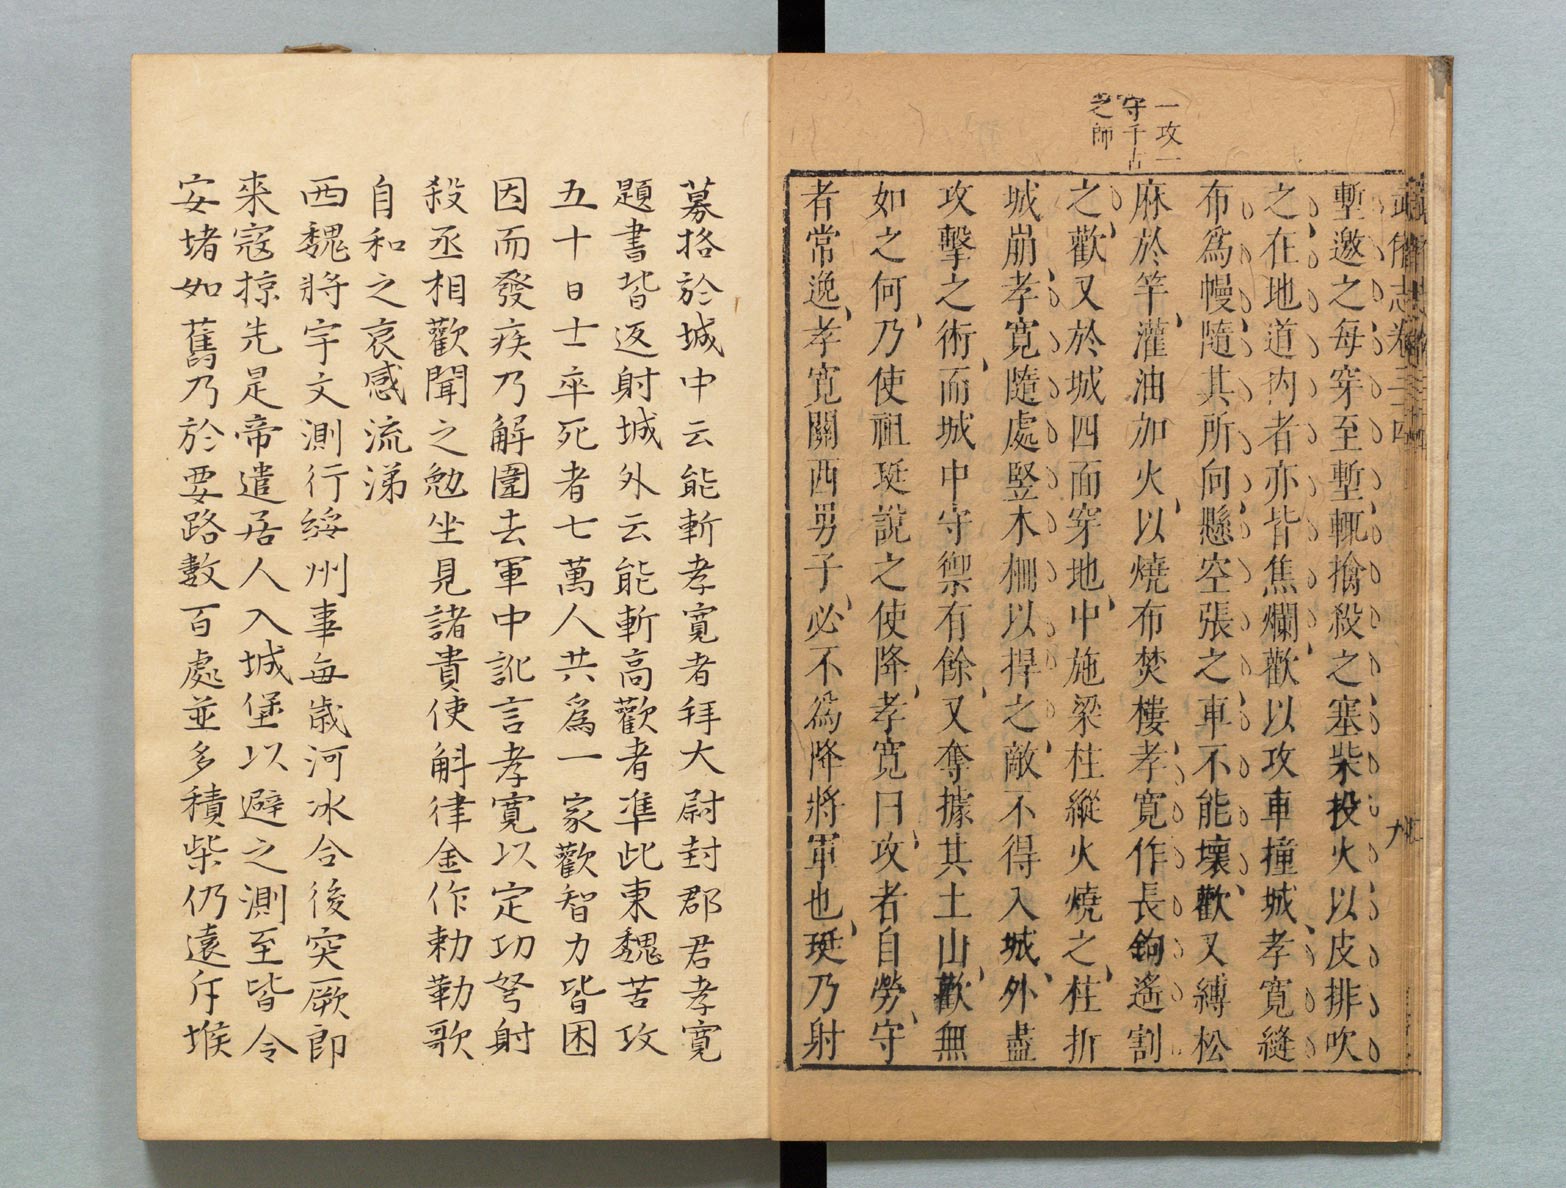 武備志卷三十四
九
一攻一
守千古
之師
塹邀之每穿至塹輒擒殺之塞柴投火以皮排吹
之在地道内者亦皆焦爛歡以攻車撞城孝寬縫
布為幔隨其所向懸空張之車不能壞歡又縛松
麻於竿灌油加火以燒布焚樓孝寬作長鉤遙割
之歡又於城四面穿地中施梁柱縱火燒之柱折
城崩孝寬隨處竪木柵以捍之敵不得入城外盡
攻擊之術而城中守禦有餘又奪據其土山歡無
如之何乃使祖珽說之使降孝寬曰攻者自勞守
者常逸孝寬關西男子必不為降將軍也珽乃射
募挌於城中云能斬孝寬者拜大尉封郡君孝寬
題書背返射城外云能斬高歡者準此東魏苦攻
五十日士卒死者七萬人共為一家歡智力皆困
因而發疾乃解圍去軍中訛言孝寬以定功弩射
殺丞相歡聞之勉坐見諸貴使斛律金作勅勒歌
自和之哀感流涕
西魏將宇文測行綏州事每歲河冰合後突厥即
來寇掠先是帝遣居人入城堡以避之測至皆令
安堵如舊乃於要路數百處並多積柴仍遠斥堠